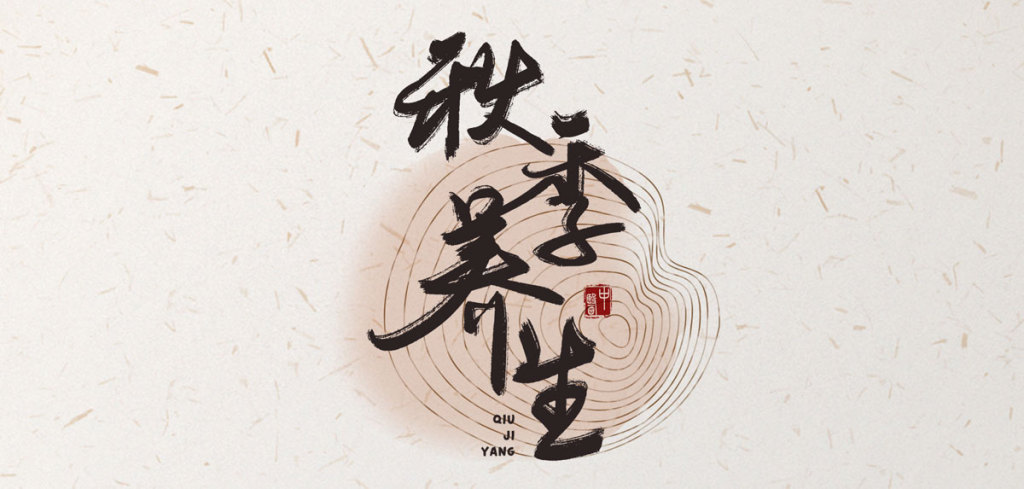 秋季
养生
中醫
QIU
JI
YANG